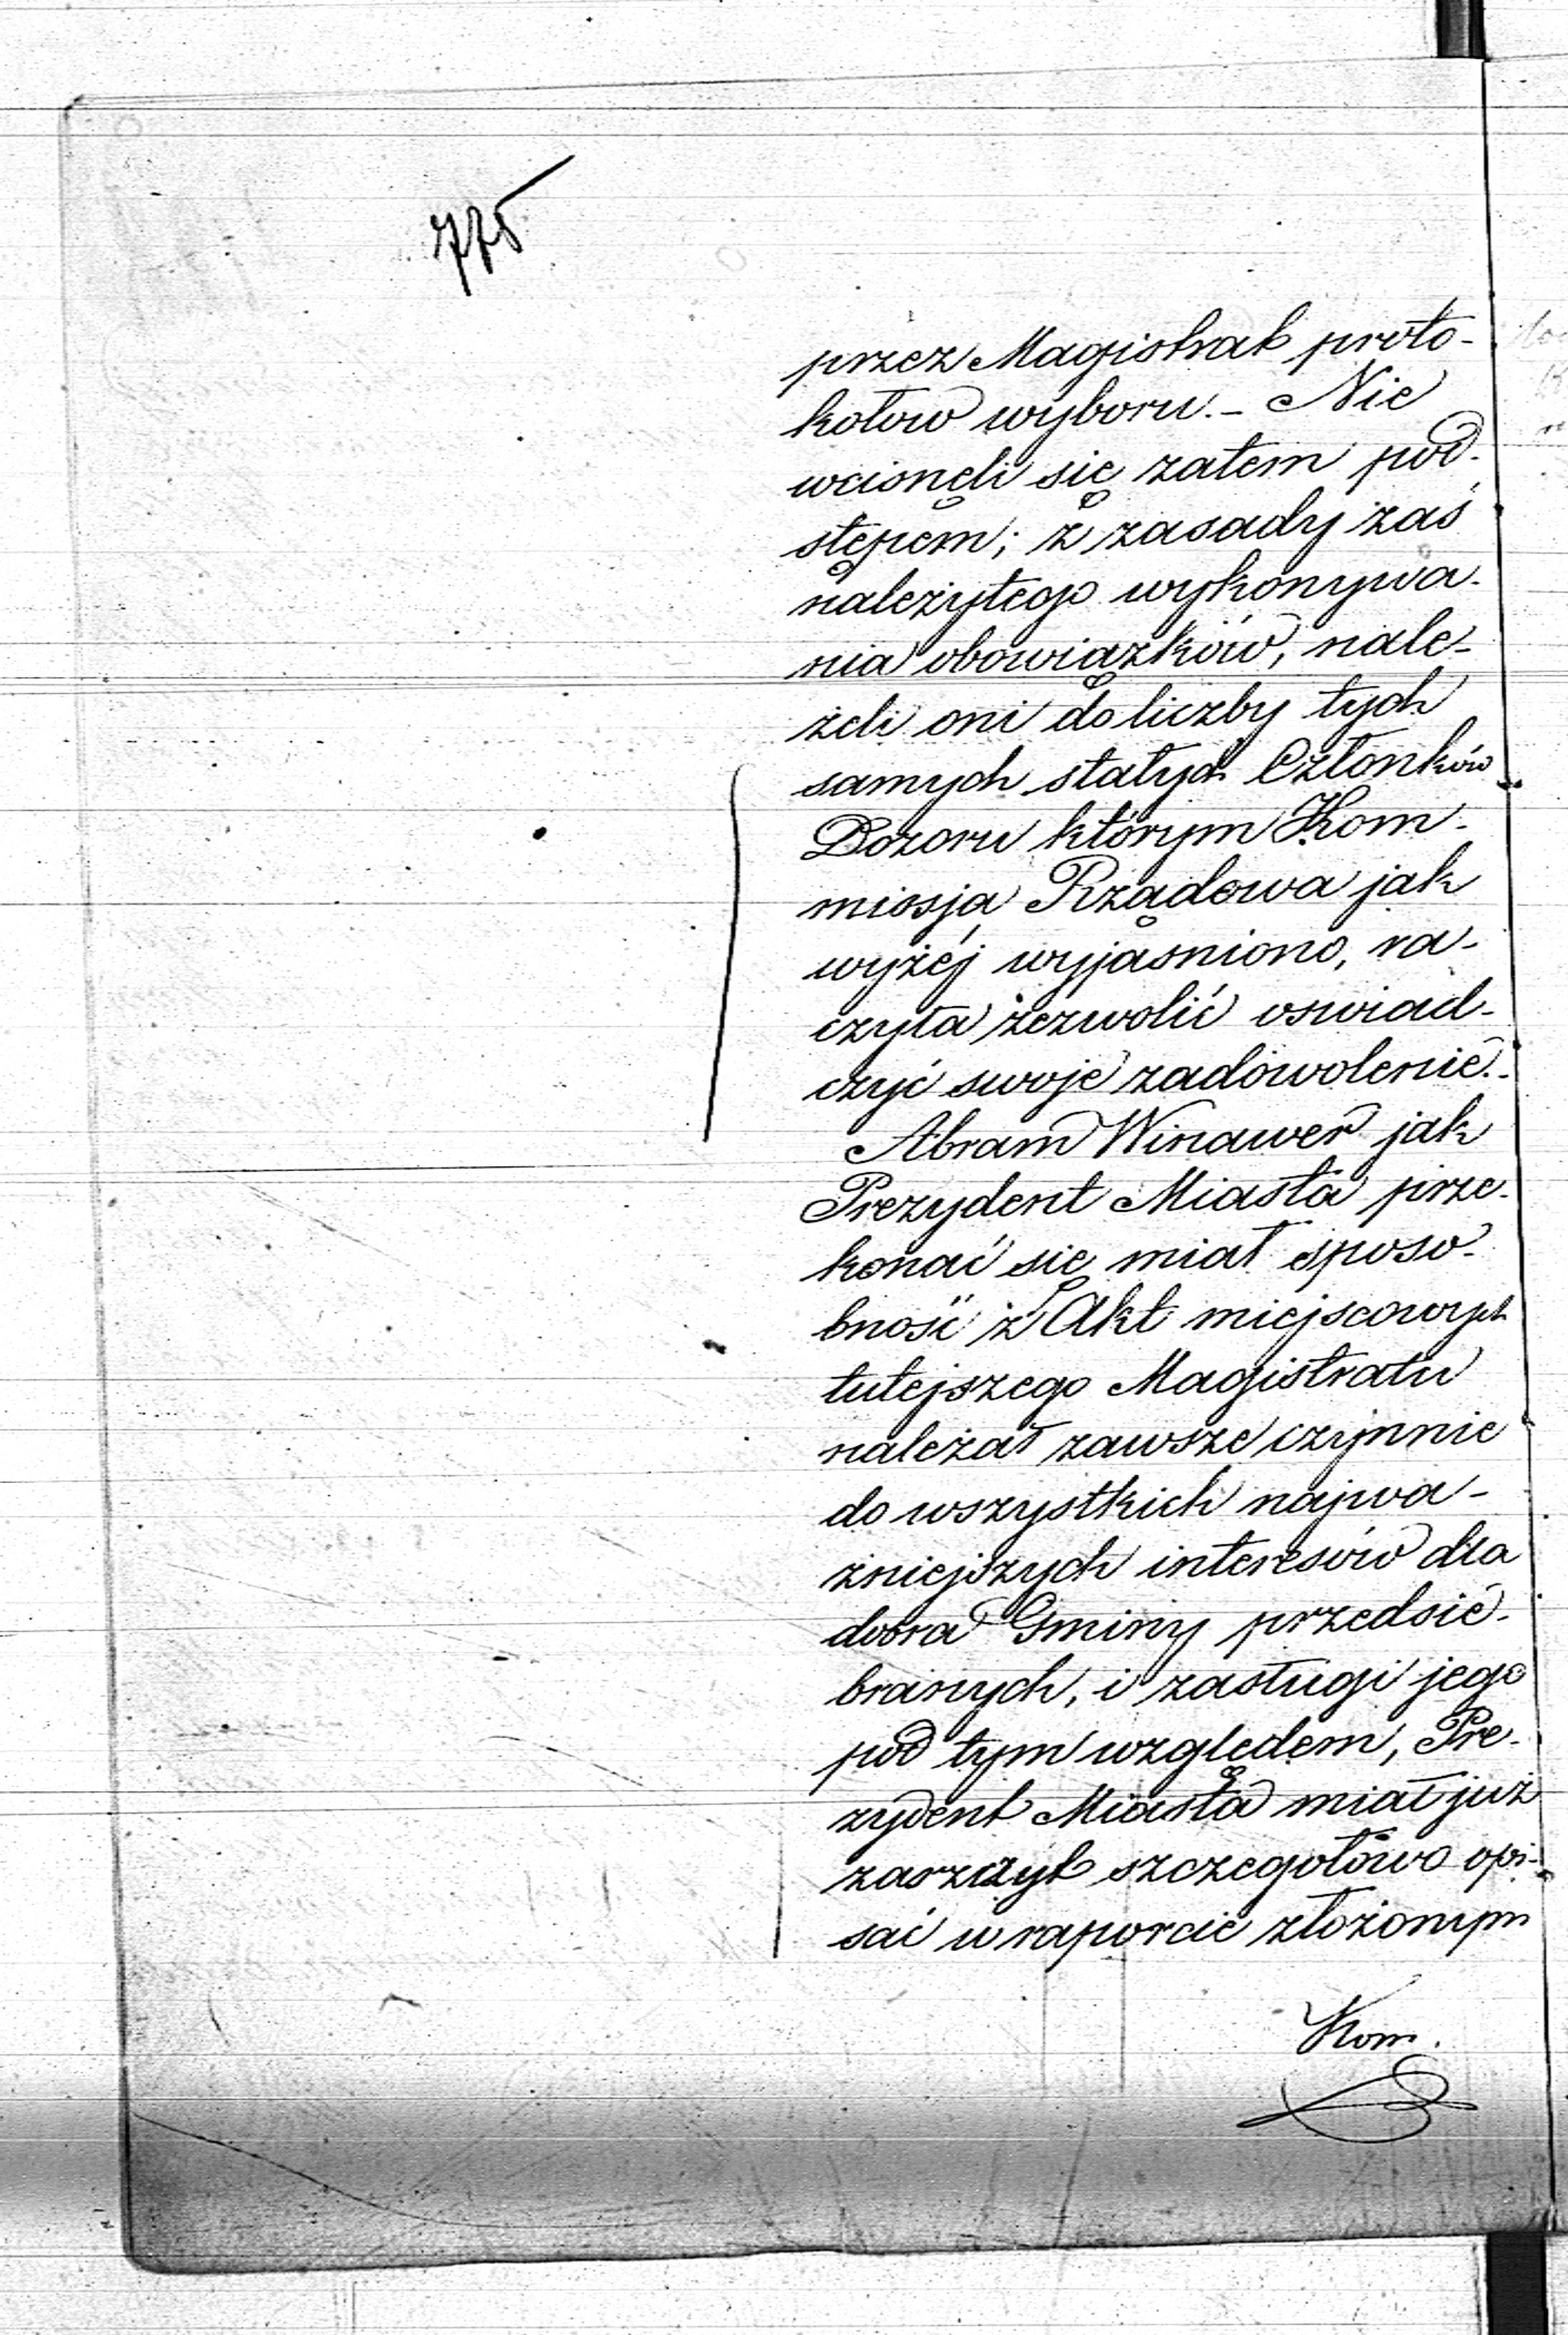 775
przez Magistrat proto-
kołow wyboru. – Nie
wcisnęli się zatem pod-
stępem; z zasady zaś
należytego wykonywa-
nia obowiązków, nale-
żeli oni do liczby tych
samych stałych Członków
Dozoru którym Kom-
missja Rządowa jak
wyżéj wyjasniono, ra-
czyła zezwolić oswiad-
czyć swoje zadowolenie. –
Abram Winawer jak
Prezydent Miasta prze-
konać się miał sposo-
bność z Akt miejscowych
tutejszego Magistratu
należał zawsze czynnie
do wszystkich najwa-
żniejszych interesów dla
dobra Gminy przedsię-
branych, i zasługi jego
pod tym względem, Pre-
zydent Miasta miał już
zaszczyt szczegołowo opi-
sać w raporcie złożonym
Kom.